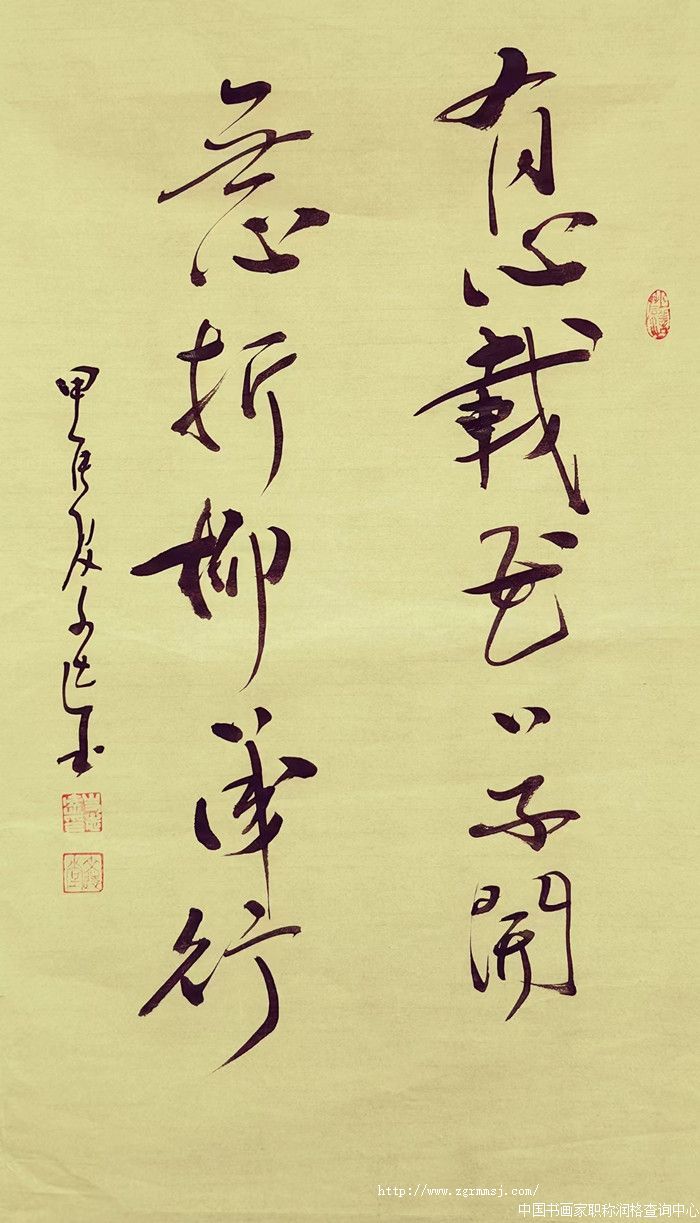 有心載花〻不開
無心折柳〻成行
甲辰夏
http://www.zgrmmsj.com/
中国书画家职称润格查询中心